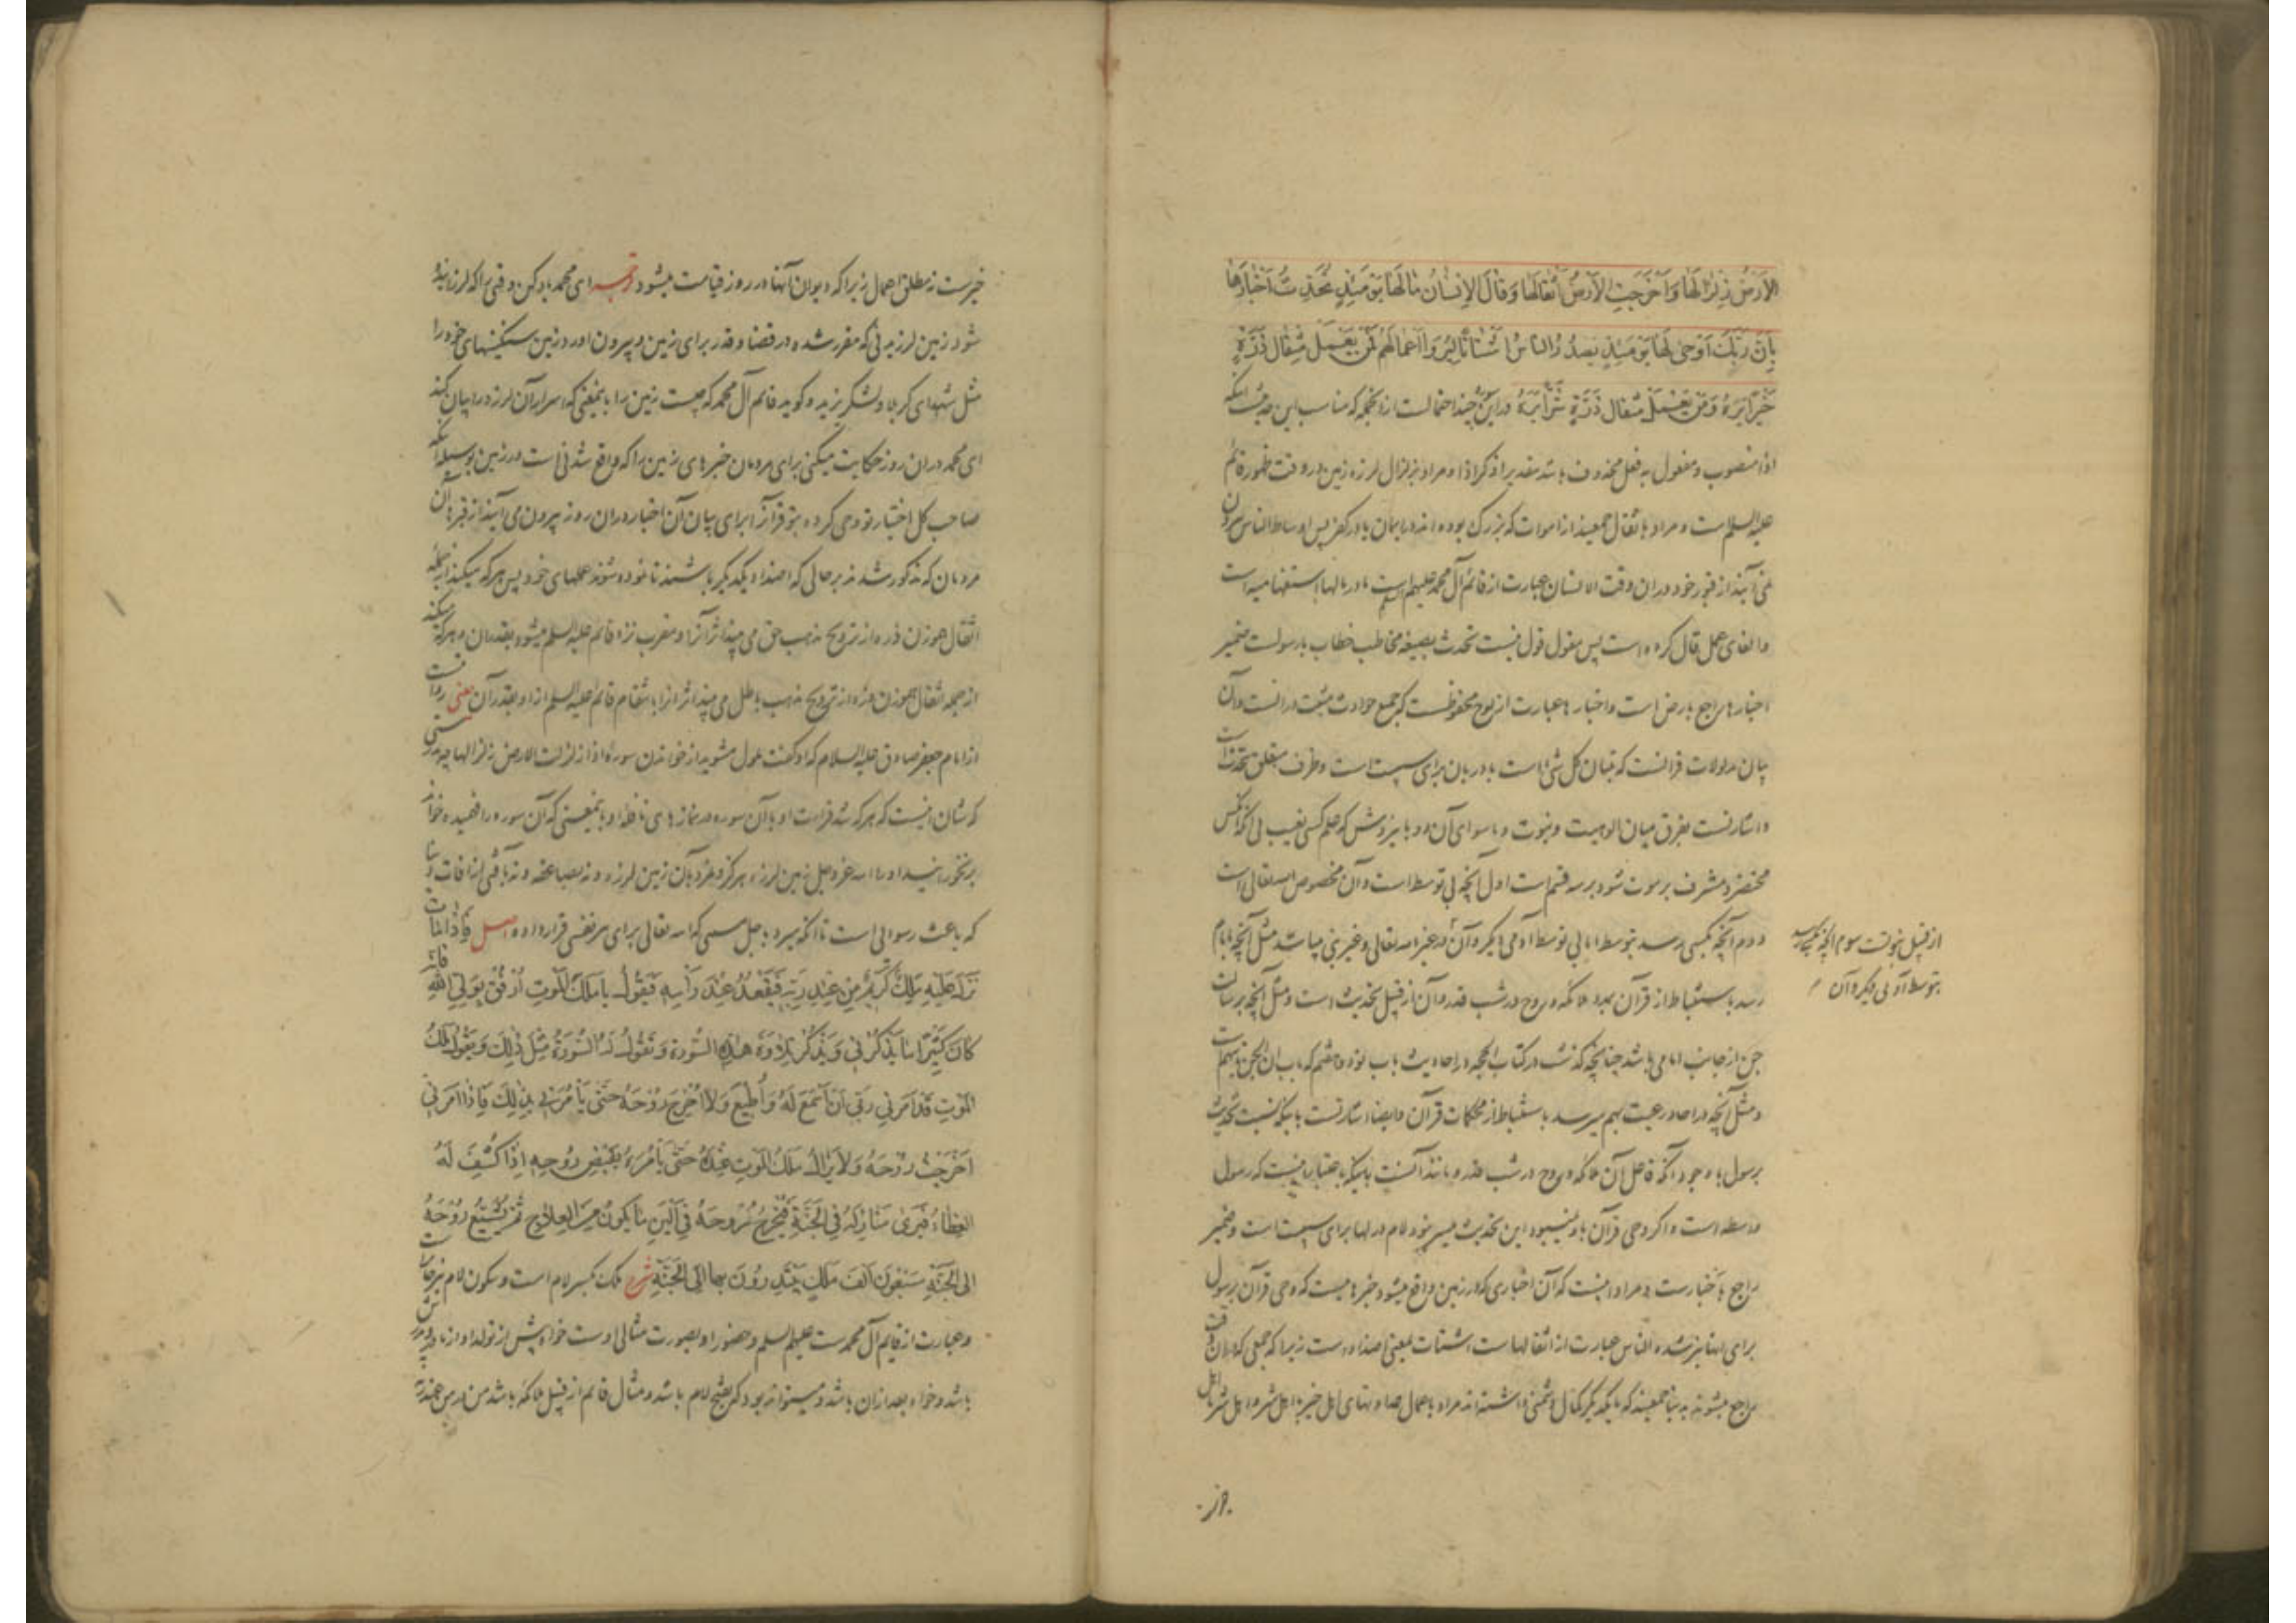 الاَرْضُ زِلْزَالَهَا وَاَخْرَجَتِ الاَرْضُ اَثْقَالَهَا وَقَالَ الاِنْسَانُ مَا لَهَا يَوْمَئِذٍ تُحَدِّثُ اَخْبَارَهَا
بِاَنَّ رَبَّكَ اَوْحَى لَهَا يَوْمَئِذٍ يَصْدُرُ النَّاسُ اَشْتَاتًا لِيُرَوْا اَعْمَالَهُمْ فَمَنْ يَعْمَلْ مِثْقَالَ ذَرَّةٍ
خَيْرًا يَرَهُ وَمَنْ يَعْمَلْ مِثْقَالَ ذَرَّةٍ شَرًّا يَرَهُ دراین چند احتمالست ازانجمله که مناسب این حدیث اینکه
اذا منصوب و مفعول به فعل محذوف باشد بتقدیر اذکر اذا و مراد بزلزال لرزه زمین در وقت ظهور قائم
علیه السلم است و مراد باثقال جمعیند از اموات که بزرک بوده اند در ایمان یا در کفر پس اوساط الناس بیرون
نمی آیند از قبور خود دران وقت الانسان عبارت از قائم آل محمد علیهم السلم است ما در مالها استفهامیه است
و القای عمل قال کرده است پس مقول قول نیست تحدث بصیغه مخاطب خطاب با رسولست ضمیر
اخبارها راجع بارض است و اخبارها عبارت از لوح محفوظست که جمیع حوادث مثبت درانست و آن
بیان مدلولات قرانست که تبیان کل شئ است با در بان برای سببیت است و ظرف متعلق بتحدث است
و اشارتست بفرق میان الوهیت و نبوت و ماسوای آن دو باینروش که علم کسی بغیب
محتضر و مشرف بر موت شود بر سه قسم است اول آنچه بی توسط است و آن مخصوص الله تعالی است
دوم آنچه بکسی رسد بتوسط اما بی توسط آدمی دیگر و آن در غیر الله تعالی و غیر نبی میباشد مثل آنچه بامام
رسد باستنباط از قرآن بمدد ملائکه و روح در شب قدر و آن از قبیل تحدیث است و مثل آنچه برسان
جن از جانب امامی باشد چنانچه گذشت در کتاب الحجه در احادیث باب نود و هشتم که باب ان الجن یاتیهم است
و مثل آنچه در احاد رعیت بهم میرسد باستنباط از محکمات قرآن و ایضا اشارتست باینکه نسبت تحدیث
برسول با وجود آنکه فاعل آن ملائکه و روح در شب قدر و مانند آنست باعتبار اینست که رسول
واسطه است و اکر وحی قرآن باو نمیبود این تحدیث میسر نبود لام در لها برای سببیت است و ضمیر
راجع باخبارست و مراد اینست که آن اخباری که در زمین واقع میشود خبرهاییست که وحی قرآن برسول
برای انها نیز شده الناس عبارت از اثقالهاست اشتات بمعنی اضداد است زیرا که جمعی که دران وقت
راجع میشوند بدنیا جمعیند که با یکدیکر کمال دشمنی داشته اند مراد باعمال عداوتهای اهل خیر با اهل شر و اهل شر با اهل
از قبیل نبوتست سوم آنچه بکسی رسد
بتوسط آدمی دیگر و آن
خیرست نه مطلق اعمال زیرا که دیوان آنها در روز قیامت میشود ترجمه ای محمد یاد کن وقتی را که لرزانیده
شود زمین لرزیدنی که مقرر شده در قضا و قدر برای زمین و بیرون اورد زمین سنکینیهای خود را
مثل شهدای کربلا و لشکر یزید و کوید قائم آل محمد که چیست زمین را بایمعنی که اسرار آن لرزه را بیان کند
ای محمد دران روز حکایت میکنی برای مردمان خبرهای زمین را که واقع شدنی است در زمین بوسیله آنکه
صاحب کل اختیار تو وحی کرده بتو قرآن را برای بیان آن اخبار دران روز بیرون می آیند از قبرها آن
مردمان که مذکور شدند بر حالی که اضداد یکدیکر باشند تا نموده شوند عملهای خود پس هر که میکند ازجمله
اثقال هموزن ذره از ترویج مذهب حق می بیند اثر آنرا و مقرب نزد قائم علیه السلم میشود بقدر آن و هر که میکند
ازجمله اثقال هموزن ذره از ترویج مذهب باطل می بیند اثر انرا بانتقام قائم علیه السلم از او بقدر آن یعنی روایتست
از امام جعفر صادق علیه السلام که او کفت ملول مشوید از خواندن سوره اذا زلزلت الارض زلزالها چه بدرستی
که شان اینست که هر که شد قراءت او بآن سوره در نمازهای نافله او بایمعنی که آن سوره را فهمیده خواند
برنخورانید او را الله عزوجل زمین لرزه هرکز و نمرد بآن زمین لرزه و نه بصاعقه و نه بآفتی از آفات دنیا
که باعث رسوائی است تا آنکه میرد باجل مسمی که الله تعالی برای هر نفسی قرار داده اصل فَاِذَا مَاتَ
نَزَلَ عَلَيْهِ مَلَكٌ كَرِيمٌ مِنْ عِنْدِ رَبِّهِ فَيَقْعُدُ عِنْدَ رَأْسِهِ فَيَقُولُ يَا مَلَكَ الْمَوْتِ ارْفُقْ بِوَلِيِّ اللهِ فَاِنَّهُ
كَانَ كَثِيرًا مَا يَذْكُرُنِي وَيَذْكُرُ تِلَاوَةَ هَذِهِ السُّورَةِ وَتَقُولُ لَهُ السُّورَةُ مِثْلَ ذَلِكَ وَيَقُولُ مَلَكُ
الْمَوْتِ قَدْ اَمَرَنِي رَبِّي اَنْ اَسْمَعَ لَهُ وَاُطِيعَ وَلَا اُخْرِجَ رُوحَهُ حَتَّى يَأْمُرَنِي بِذَلِكَ فَاِذَا اَمَرَنِي
اَخْرَجْتُ رُوحَهُ وَلَا يَزَالُ مَلَكُ الْمَوْتِ عِنْدَهُ حَتَّى يَأْمُرَهُ بِقَبْضِ رُوحِهِ اِذَا كُشِفَ لَهُ
الْغِطَاءُ فَيَرَى مَنَازِلَهُ فِي الْجَنَّةِ فَيُخْرِجُ رُوحَهُ فِي اَلْيَنِ مَا يَكُونُ مِنَ الْعِلَاجِ ثُمَّ يُشَيِّعُ رُوحَهُ
اِلَى الْجَنَّةِ سَبْعُونَ اَلْفَ مَلَكٍ يَبْتَدِرُونَ بِهَا اِلَى الْجَنَّةِ شرح ملک بکسر لام است و سکون لام نیز جایز است
و عبارت از قایم آل محمد ست علیهم السلم و حضور او بصورت مثالی اوست خواه پیش از تولد او از مادرش
باشد و خواه بعد ازان باشد و میتواند بود که بفتح لام باشد و مثال قائم از قبیل ملائکه باشد من در من عند ربه